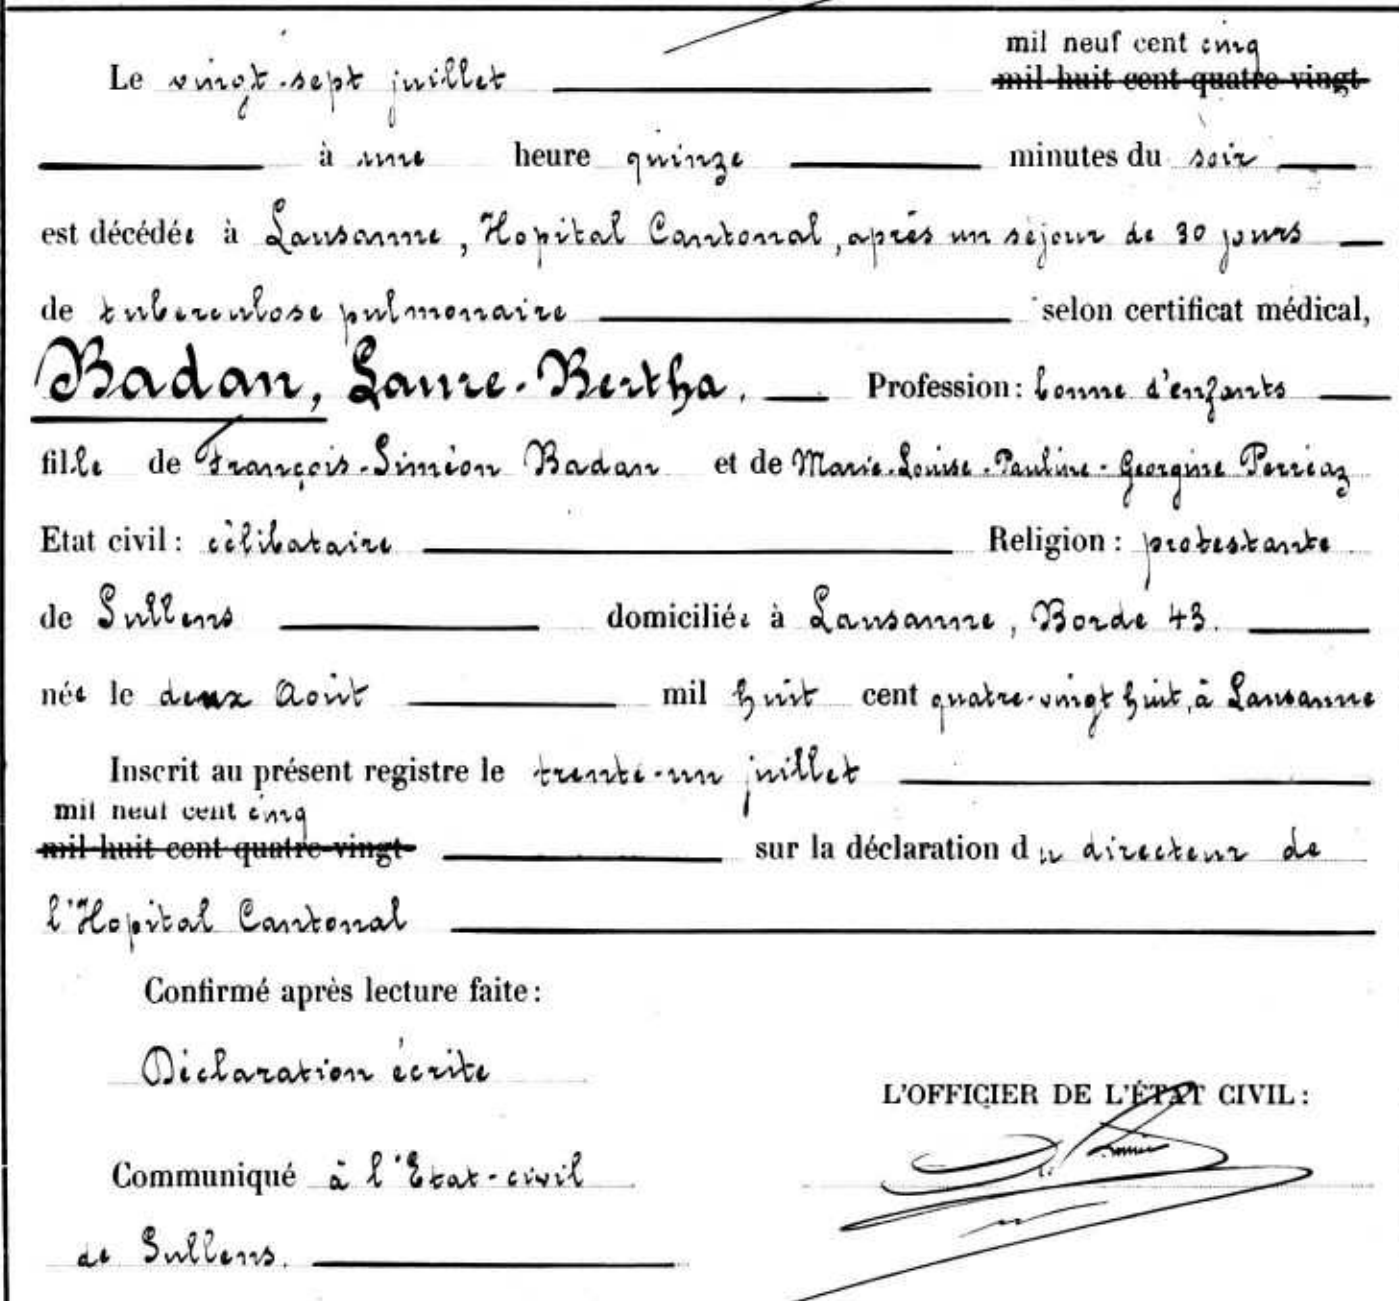 mil neuf cent cinq
Le vingt-sept juillet mil huit cent quatre-vingt
à une heure quinze minutes du soir
est décédée à Lausanne, Hopital Cantonal, après un séjour de 30 jours
de tuberculose pulmonaire selon certificat médical,
Badan, Laure-Bertha. Profession: bonne d'enfants
fille de François-Siméon Badan et de Marie-Louise-Pauline-Georgine Perréaz
Etat civil: célibataire Religion: protestante
de Sullens domiciliée à Lausanne, Borde 43.
née le deux Août mil huit cent quatre-vingt huit, à Lausanne
Inscrit au présent registre le trente-un juillet
mil neuf cent cinq
mil huit cent quatre-vingt sur la déclaration du directeur de
l'Hopital Cantonal
Confirmé après lecture faite:
Déclaration écrite
L'OFFICIER DE L'ÉTAT CIVIL:
Communiqué à l'Etat-civil
de Sullens.